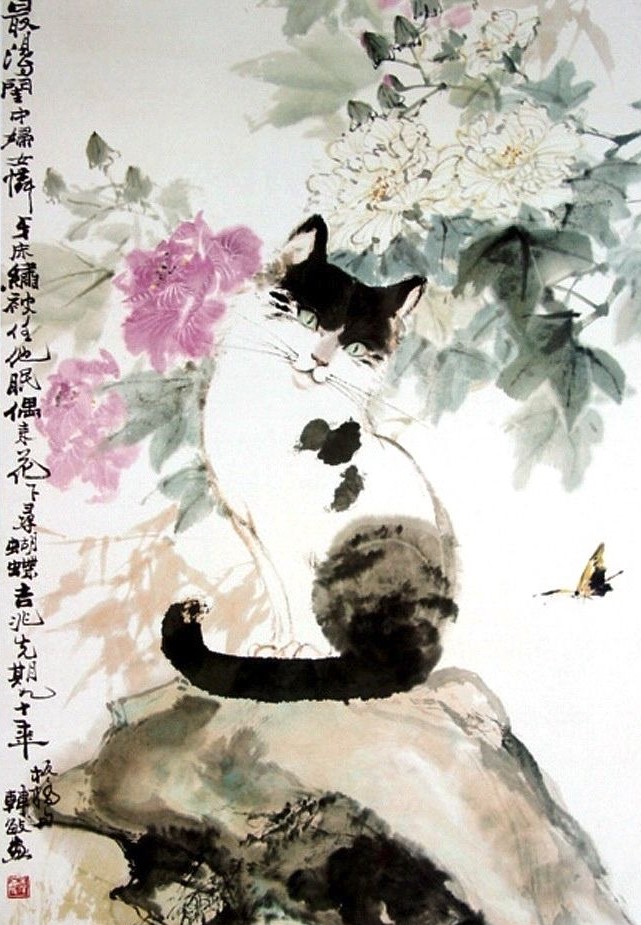 最得閨中婦女憐牙床繡被任他眠偶來花下尋蝴蝶吉兆先期九十年
板橋句
韓敏畫